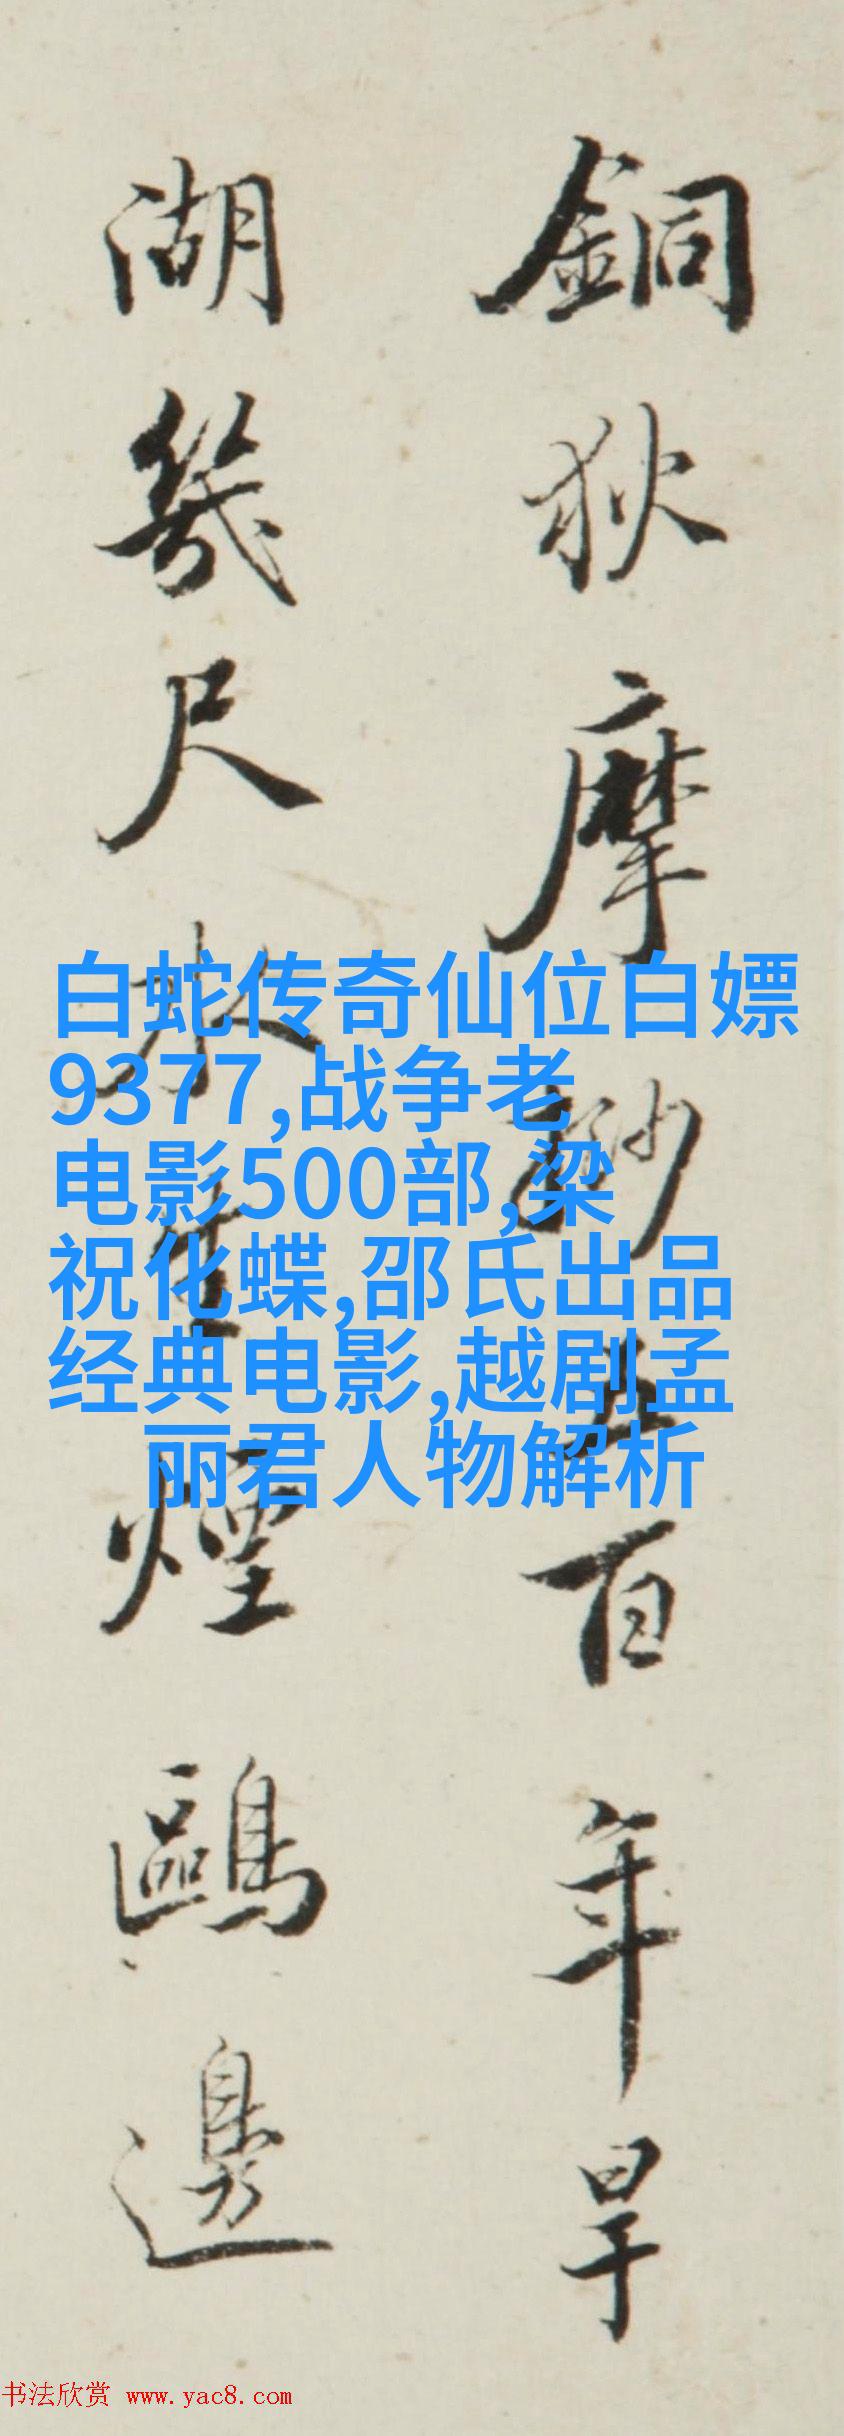 銅狄摩挲五百年旱
湖幾尺水生煙鷗邊
白蛇传奇仙位白嫖
9377,战争老
电影500部,梁
祝化蝶,邵氏出品
经典电影,越剧孟
丽君人物解析
书法欣赏 www.yac8.com